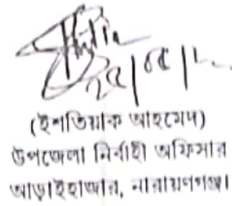 (ইশতিয়াক আহমেদ)
উপজেলা নির্বাহী অফিসার
আড়াইহাজার, নারায়ণগঞ্জ।